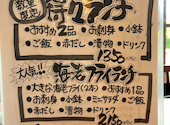 数量限定
ランチ
・おすすめ2品 ・お刺身 ・小鉢
・ご飯 ・赤だし ・漬物 ・ドリンク
1350
大人気!! 海老フライランチ
・大きな海老フライ(2本) ・おすすめ1品
・お刺身 ・小鉢 ・ミニサラダ ・ご飯
・赤だし ・漬物 ・ドリンク
2150